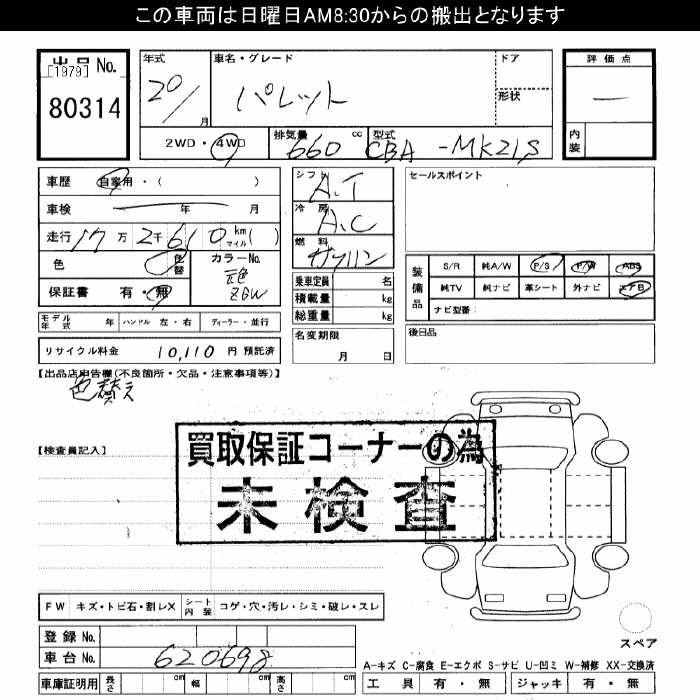 この車両は日曜日AM8:30からの搬出となります
出品 No.
[1979]
80314
年式 20/ 月
車名・グレード パレット
ドア
形状
評価点 —
内装
2WD・4WD
排気量 660 cc
型式 CBA-MK21S
車歴 自家用・( )
車検 年 月
走行 17万2千610 km マイル( )
色 色替
カラーNo. 元色 ZGW
保証書 有・無
シフト A.T
冷房 A.C
燃料 ガソリン
乗車定員 名
積載量 kg
総重量 kg
セールスポイント
装備品
S/R 純A/W P/S P/W ABS
純TV 純ナビ 革シート 外ナビ エアB
ナビ型番:
モデル年式 年 ハンドル 左・右 ディーラー・並行
名変期限 月 日
後日品
リサイクル料金 10,110 円 預託済
【出品店申告欄(不良箇所・欠品・注意事項等)】
色替え
買取保証コーナーの為
未検査
【検査員記入】
FW キズ・トビ石・割レX シート内装 コゲ・穴・汚レ・シミ・破レ・スレ
スペア
登録 No.
車台 No. 620698
車庫証明用 長さ cm 幅 cm 高さ cm
A-キズ C-腐食 E-エクボ S-サビ U-凹ミ W-補修 XX-交換済
工具 有・無 ジャッキ 有・無